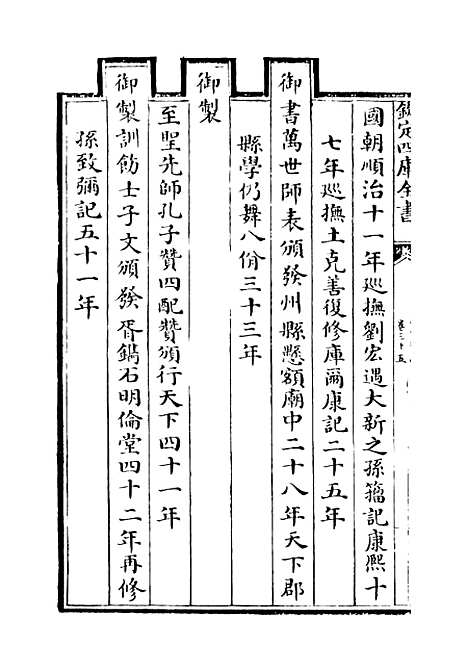 欽定四庫全書
卷三十五
國朝順治十一年巡撫劉宏遇大新之孫籀記康熙十
七年巡撫土克善復修庫爾康記二十五年
御書萬世師表頒發州縣懸額廟中二十八年天下郡
縣學仍舞八佾三十三年
御製
至聖先師孔子贊四配贊頒行天下四十一年
御製訓飭士子文頒發胥鐫石明倫堂四十二年再修
孫致彌記五十一年